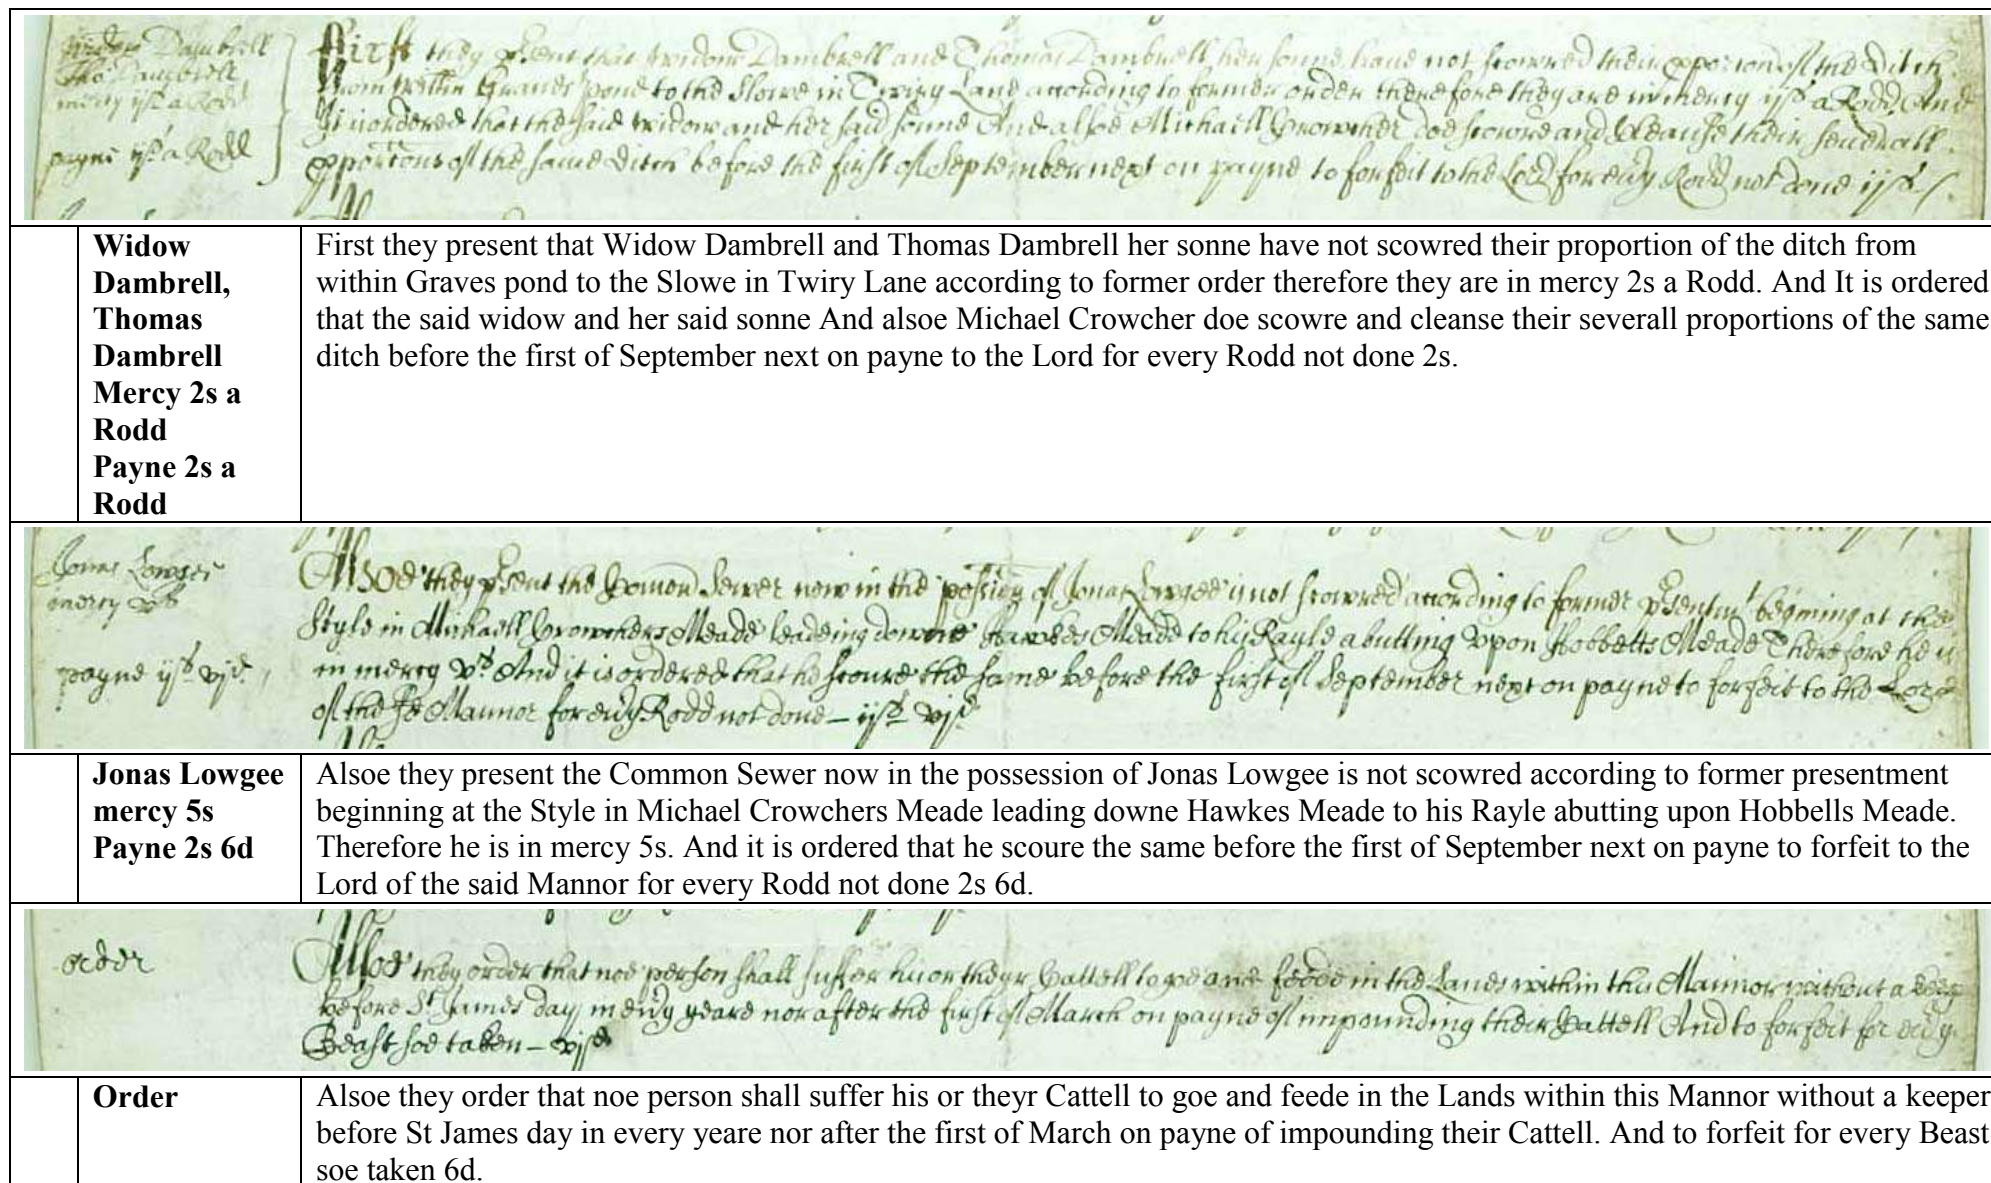 Widow Dambrell
Tho Dambrell
mercy ijs a Rodd
payne ijs a Rodd
First they present that widow Dambrell and Thomas Dambrell her sonne have not scowred their proportion of the Ditch
from within Graves pond to the Slowe in Twiry Lane according to former order therefore they are in mercy ijs a Rodd. And
It is ordered that the said widow and her said sonne And alsoe Michaell Crowcher doe scowre and Cleanse their severall
proportions of the same Ditch before the first of September next on payne to forfeit to the Lord for evy Rodd not done ijs
Widow
Dambrell,
Thomas
Dambrell
Mercy 2s a
Rodd
Payne 2s a
Rodd
First they present that Widow Dambrell and Thomas Dambrell her sonne have not scowred their proportion of the ditch from
within Graves pond to the Slowe in Twiry Lane according to former order therefore they are in mercy 2s a Rodd. And It is ordered
that the said widow and her said sonne And alsoe Michael Crowcher doe scowre and cleanse their severall proportions of the same
ditch before the first of September next on payne to the Lord for every Rodd not done 2s.
Jonas Lowgee
mercy vs
payne ijs vjd
Alsoe they psent the Comon Sewer now in the possion of Jonas Lowgee is not scowred according to former psentmt begining at the
Style in Michaell Crowchers Meade leadeing downe Hawkes Meade to his Rayle abutting vpon Hobbells Meade Therefore he is
in mercy vs And it is ordered that he scoure the same before the first of September next on payne to forfeit to the Lord
of the sd Mannor for evy Rodd not done – ijs vjd
Jonas Lowgee
mercy 5s
Payne 2s 6d
Alsoe they present the Common Sewer now in the possession of Jonas Lowgee is not scowred according to former presentment
beginning at the Style in Michael Crowchers Meade leading downe Hawkes Meade to his Rayle abutting upon Hobbells Meade.
Therefore he is in mercy 5s. And it is ordered that he scoure the same before the first of September next on payne to forfeit to the
Lord of the said Mannor for every Rodd not done 2s 6d.
order
Alsoe they order that noe person shall suffer his or theyr Cattell to goe and feede in the Lands within this Mannor without a keep
before St James day in evy yeare nor after the first of March on payne of impounding their Cattell And to forfeit for evy
Beast soe taken – vjd
Order
Alsoe they order that noe person shall suffer his or theyr Cattell to goe and feede in the Lands within this Mannor without a keeper
before St James day in every yeare nor after the first of March on payne of impounding their Cattell. And to forfeit for every Beast
soe taken 6d.